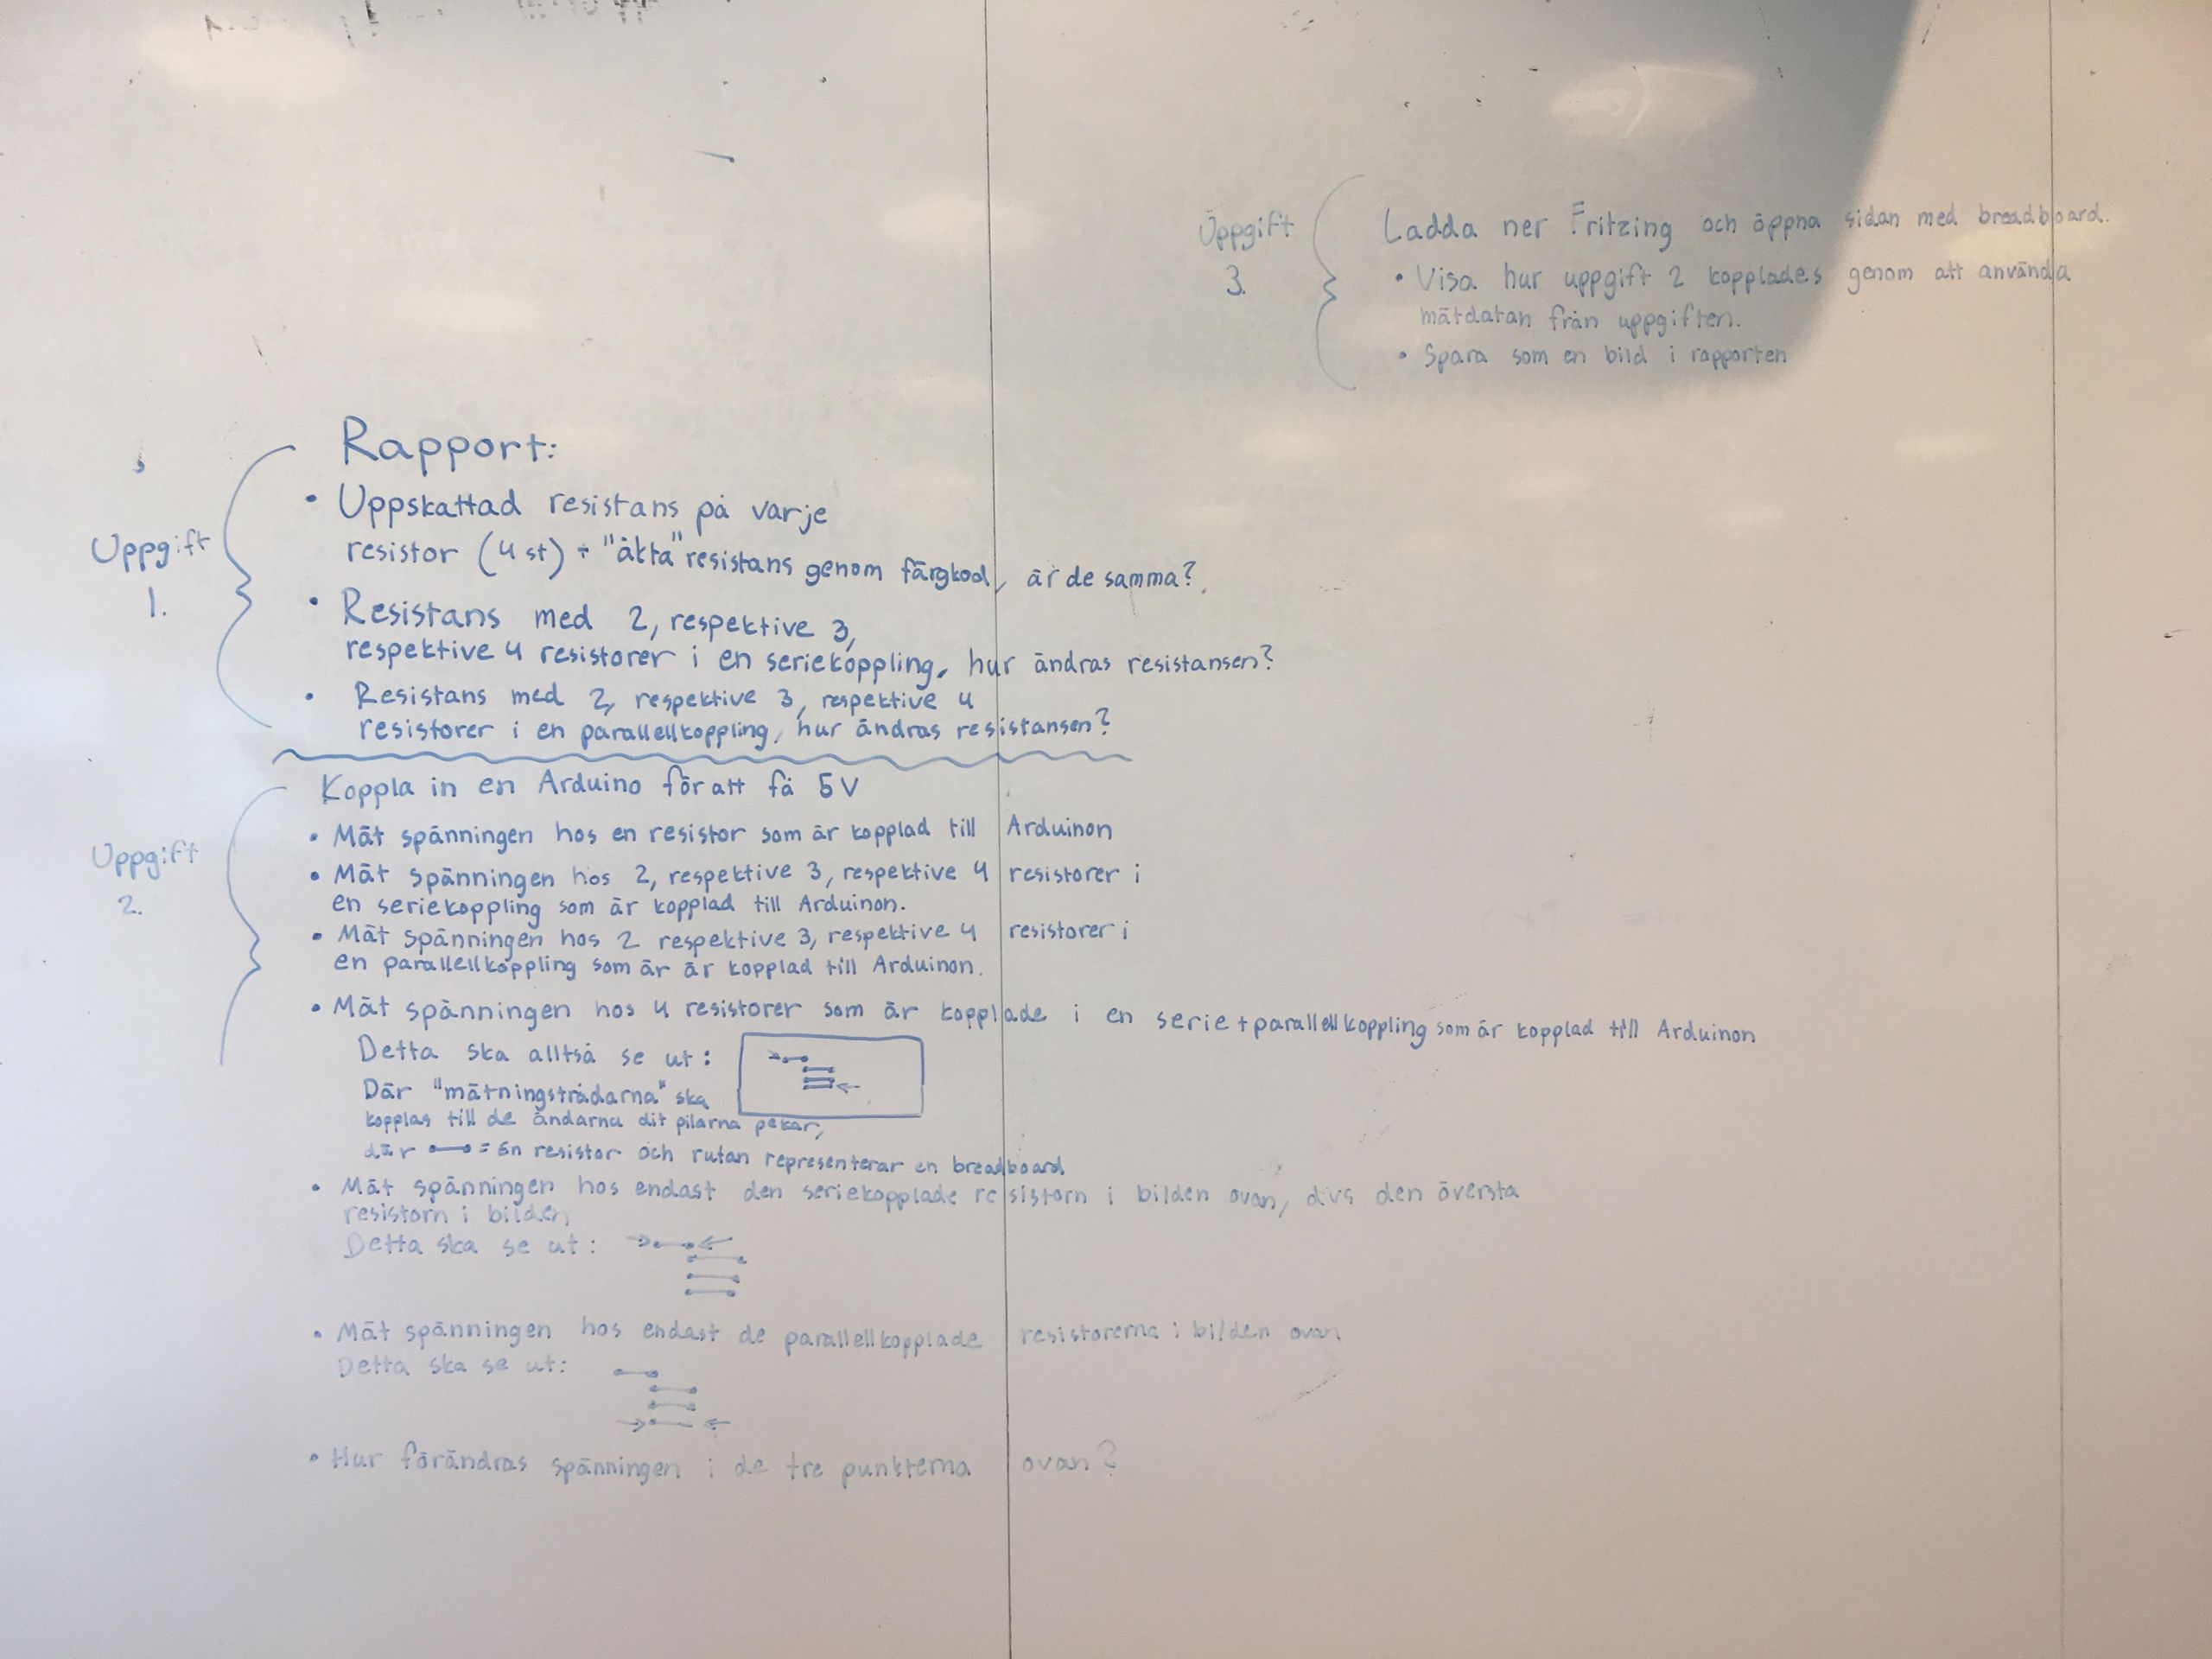 Rapport:
Uppgift
1.
• Uppskattad resistans på varje
resistor (4 st) + "äkta" resistans genom färgkod, är de samma?
• Resistans med 2, respektive 3,
respektive 4 resistorer i en seriekoppling, hur ändras resistansen?
• Resistans med 2, respektive 3, respektive 4
resistorer i en parallellkoppling, hur ändras resistansen?
Uppgift
2.
Koppla in en Arduino för att få 5V
• Mät spänningen hos en resistor som är kopplad till Arduinon
• Mät spänningen hos 2, respektive 3, respektive 4 resistorer i
en seriekoppling som är kopplad till Arduinon.
• Mät spänningen hos 2 respektive 3, respektive 4 resistorer i
en parallellkoppling som är är kopplad till Arduinon.
• Mät spänningen hos 4 resistorer som är kopplade i en serie+parallellkoppling som är kopplad till Arduinon
Detta ska alltså se ut:
Där "mätningstrådarna" ska
kopplas till de ändarna dit pilarna pekar,
där = En resistor och rutan representerar en breadboard
• Mät spänningen hos endast den seriekopplade resistorn i bilden ovan, dvs den översta
resistorn i bilden
Detta ska se ut:
• Mät spänningen hos endast de parallellkopplade resistorerna i bilden ovan
Detta ska se ut:
• Hur förändras spänningen i de tre punkterna ovan?
Uppgift
3.
Ladda ner Fritzing och öppna sidan med breadboard.
• Visa hur uppgift 2 kopplades genom att använda
mätdatan från uppgiften.
• Spara som en bild i rapporten